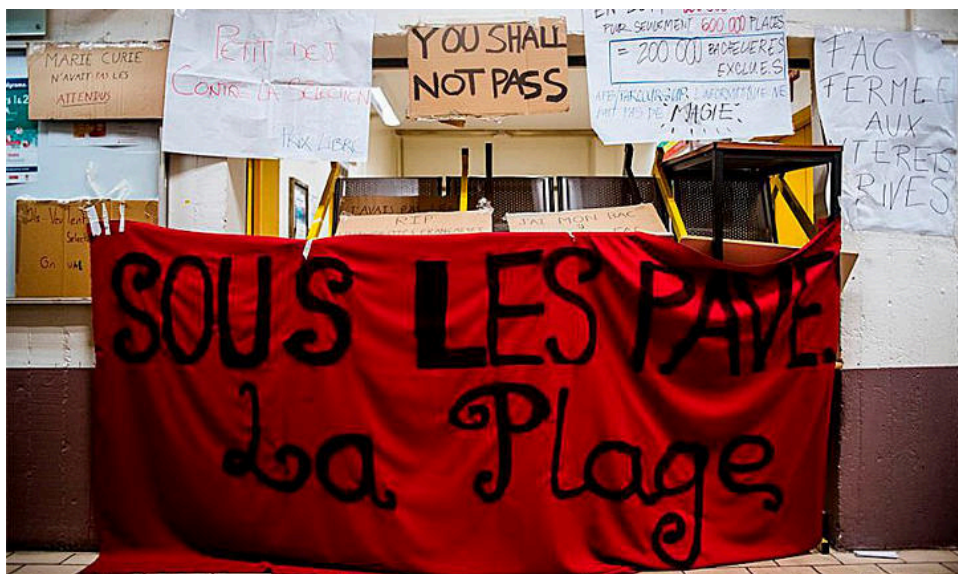 MARIE CURIE
N'AVAIT PAS LES
ATTENDUS
PETIT DEJ
CONTRE LA SELECTION
PRIX LIBRE
YOU SHALL
NOT PASS
POUR SEULEMENT 600 000 PLACES
= 200 000 BACHELIERES
EXCLUES
APB/PARCOURSUP L'INFORMATIQUE NE
FAIT PAS DE MAGIE
FAC
FERMEE
AUX
RIVES
J'AVAIS
R.I.P
J'AI MON BAC
SOUS LES PAVE
La Plage